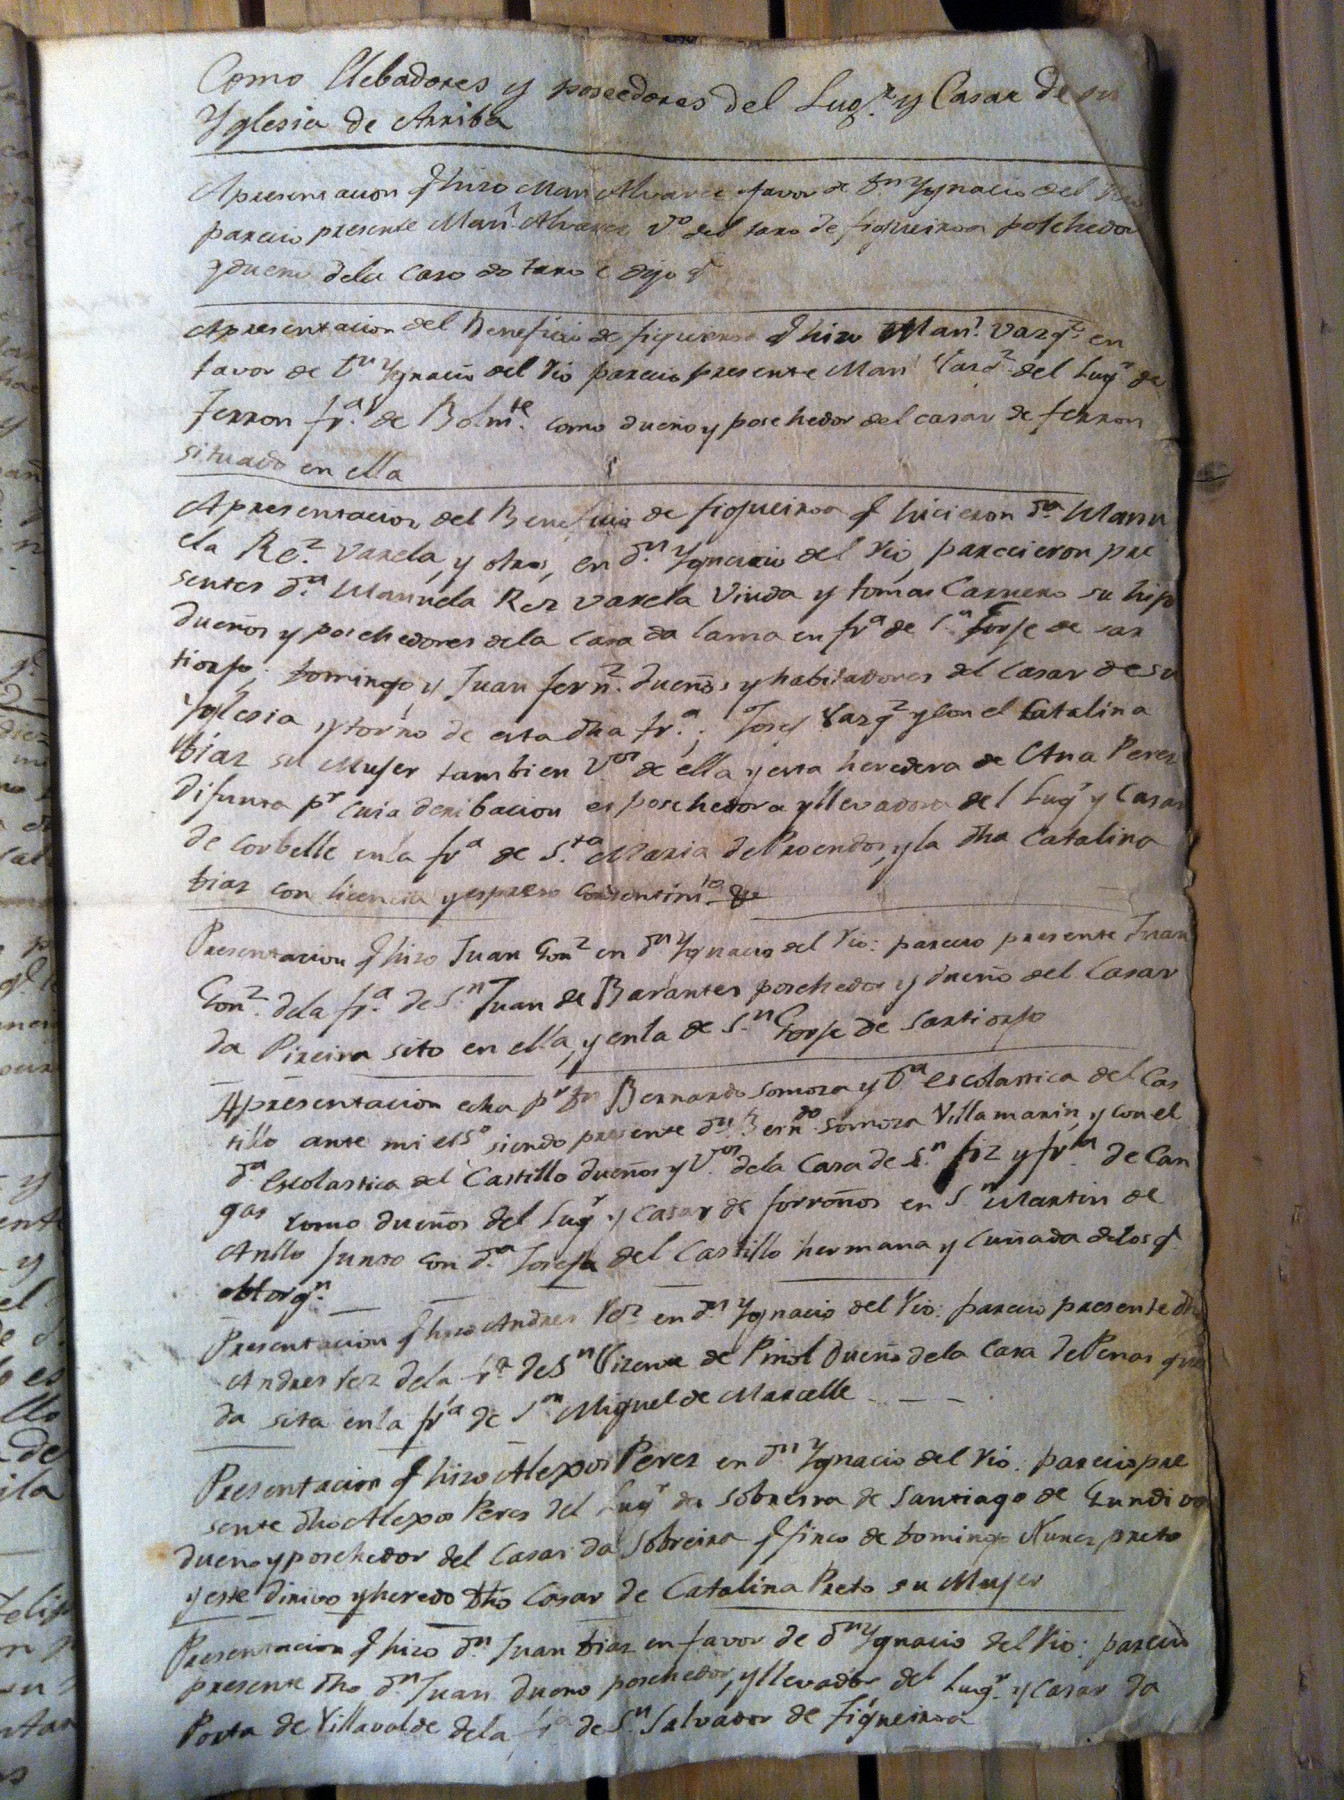 Como llebadores y poseedores del Lugr. y Casar de su
Yglesia de Arriba
Apresentacion q hizo Man Alvarez favor de Dn Ygnacio del Rio
parecio presente Manl. Alvarez Vo del de figueiroa poschedor
y dueño dela Casa do e dijo q
Apresentacion del Beneficio de figueiroa q hizo Manl. Vazqz. en
favor de Dn Ygnacio del Rio parecio presente Manl Vazqz del Lugr de
Ferron fra. de Bolmte. como dueño y poschedor del casar de ferron
situado en ella
Apresentacion del Beneficio de figueiroa q hicieron Da. Manu
ela Rez. Varela, y otros, en Dn. Ygnacio del Rio, parecieron pre
sentes Da. Manuela Rez Varela Viuda y tomas Carnero su hijo
dueños y poschedores dela Casa da lama en fra de Sn Jorje de san
tiorjo; Domingo, y Juan fernz. dueños y habitadores del Casar de su
Yglesia y torno de esta dha fra.; Josef Vazqz y con el Catalina
Diaz su Mujer tambien Vos de ella y esta heredera de Ana Perez
difunta pr cuia deribacion es poschedora y llevadora del Lugr y Casar
de Corbelle enla fra de Sta. Maria de Proendos, y la dha Catalina
Diaz con licencia y espreso consentimto. &
Presentacion q hizo Juan Gonz en Dn Ygnacio del Rio: parecio presente Juan
Gonz. dela fra. de Sn. Juan de Barantes poschedor y dueño del Casar
da Pireira sito en ella, y enla de Sn Gorje de Santiorjo
Apresentacion echa pr Dn Bernardo Somoza y Da Escolastica del Cas
tillo ante mi el So siendo presente Dn. Berndo. Somoza Villamarin, y con el
Da Escolastica del Castillo dueños y Vos. dela Casa de Sn. fiz y fra de Can
gas como dueños del Lugr y Casar de forroños en Sn Martin de
Anllo junto con Da. Josefa del Castillo hermana y Cuñada delos q
otorgn.
Presentacion q hizo Andres Rez en Dn Ygnacio del Rio: parecio presente dho
Andres Rez dela fra de Sn Vizente de Pinol Dueño dela Casa de Penas
da sita enla fra de Sn Miguel de Marcelle
Presentacion q hizo Alexos Perez en Dn Ygnacio del Rio: parecio pre
sente dho Alexos Perez del Lugr da Sobreira de Santiago de Gundivos
dueño y poschedor del Casar da Sobreira q finco de Domingo Nunez preto
y este y heredo dho Casar de Catalina Preto su Mujer
Presentacion q hizo Dn Juan Diaz en favor de Dn Ygnacio del Rio: parecio
presente dho Dn Juan dueño poschedor, y llevador del Lugr. y Casar da
Porta de Villavalde dela fra de Sn. Salvador de Figueiroa